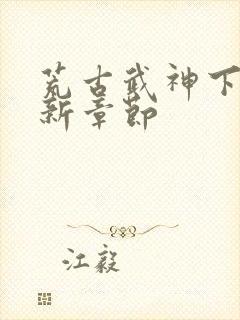 荒古武神下
新章节
江毅